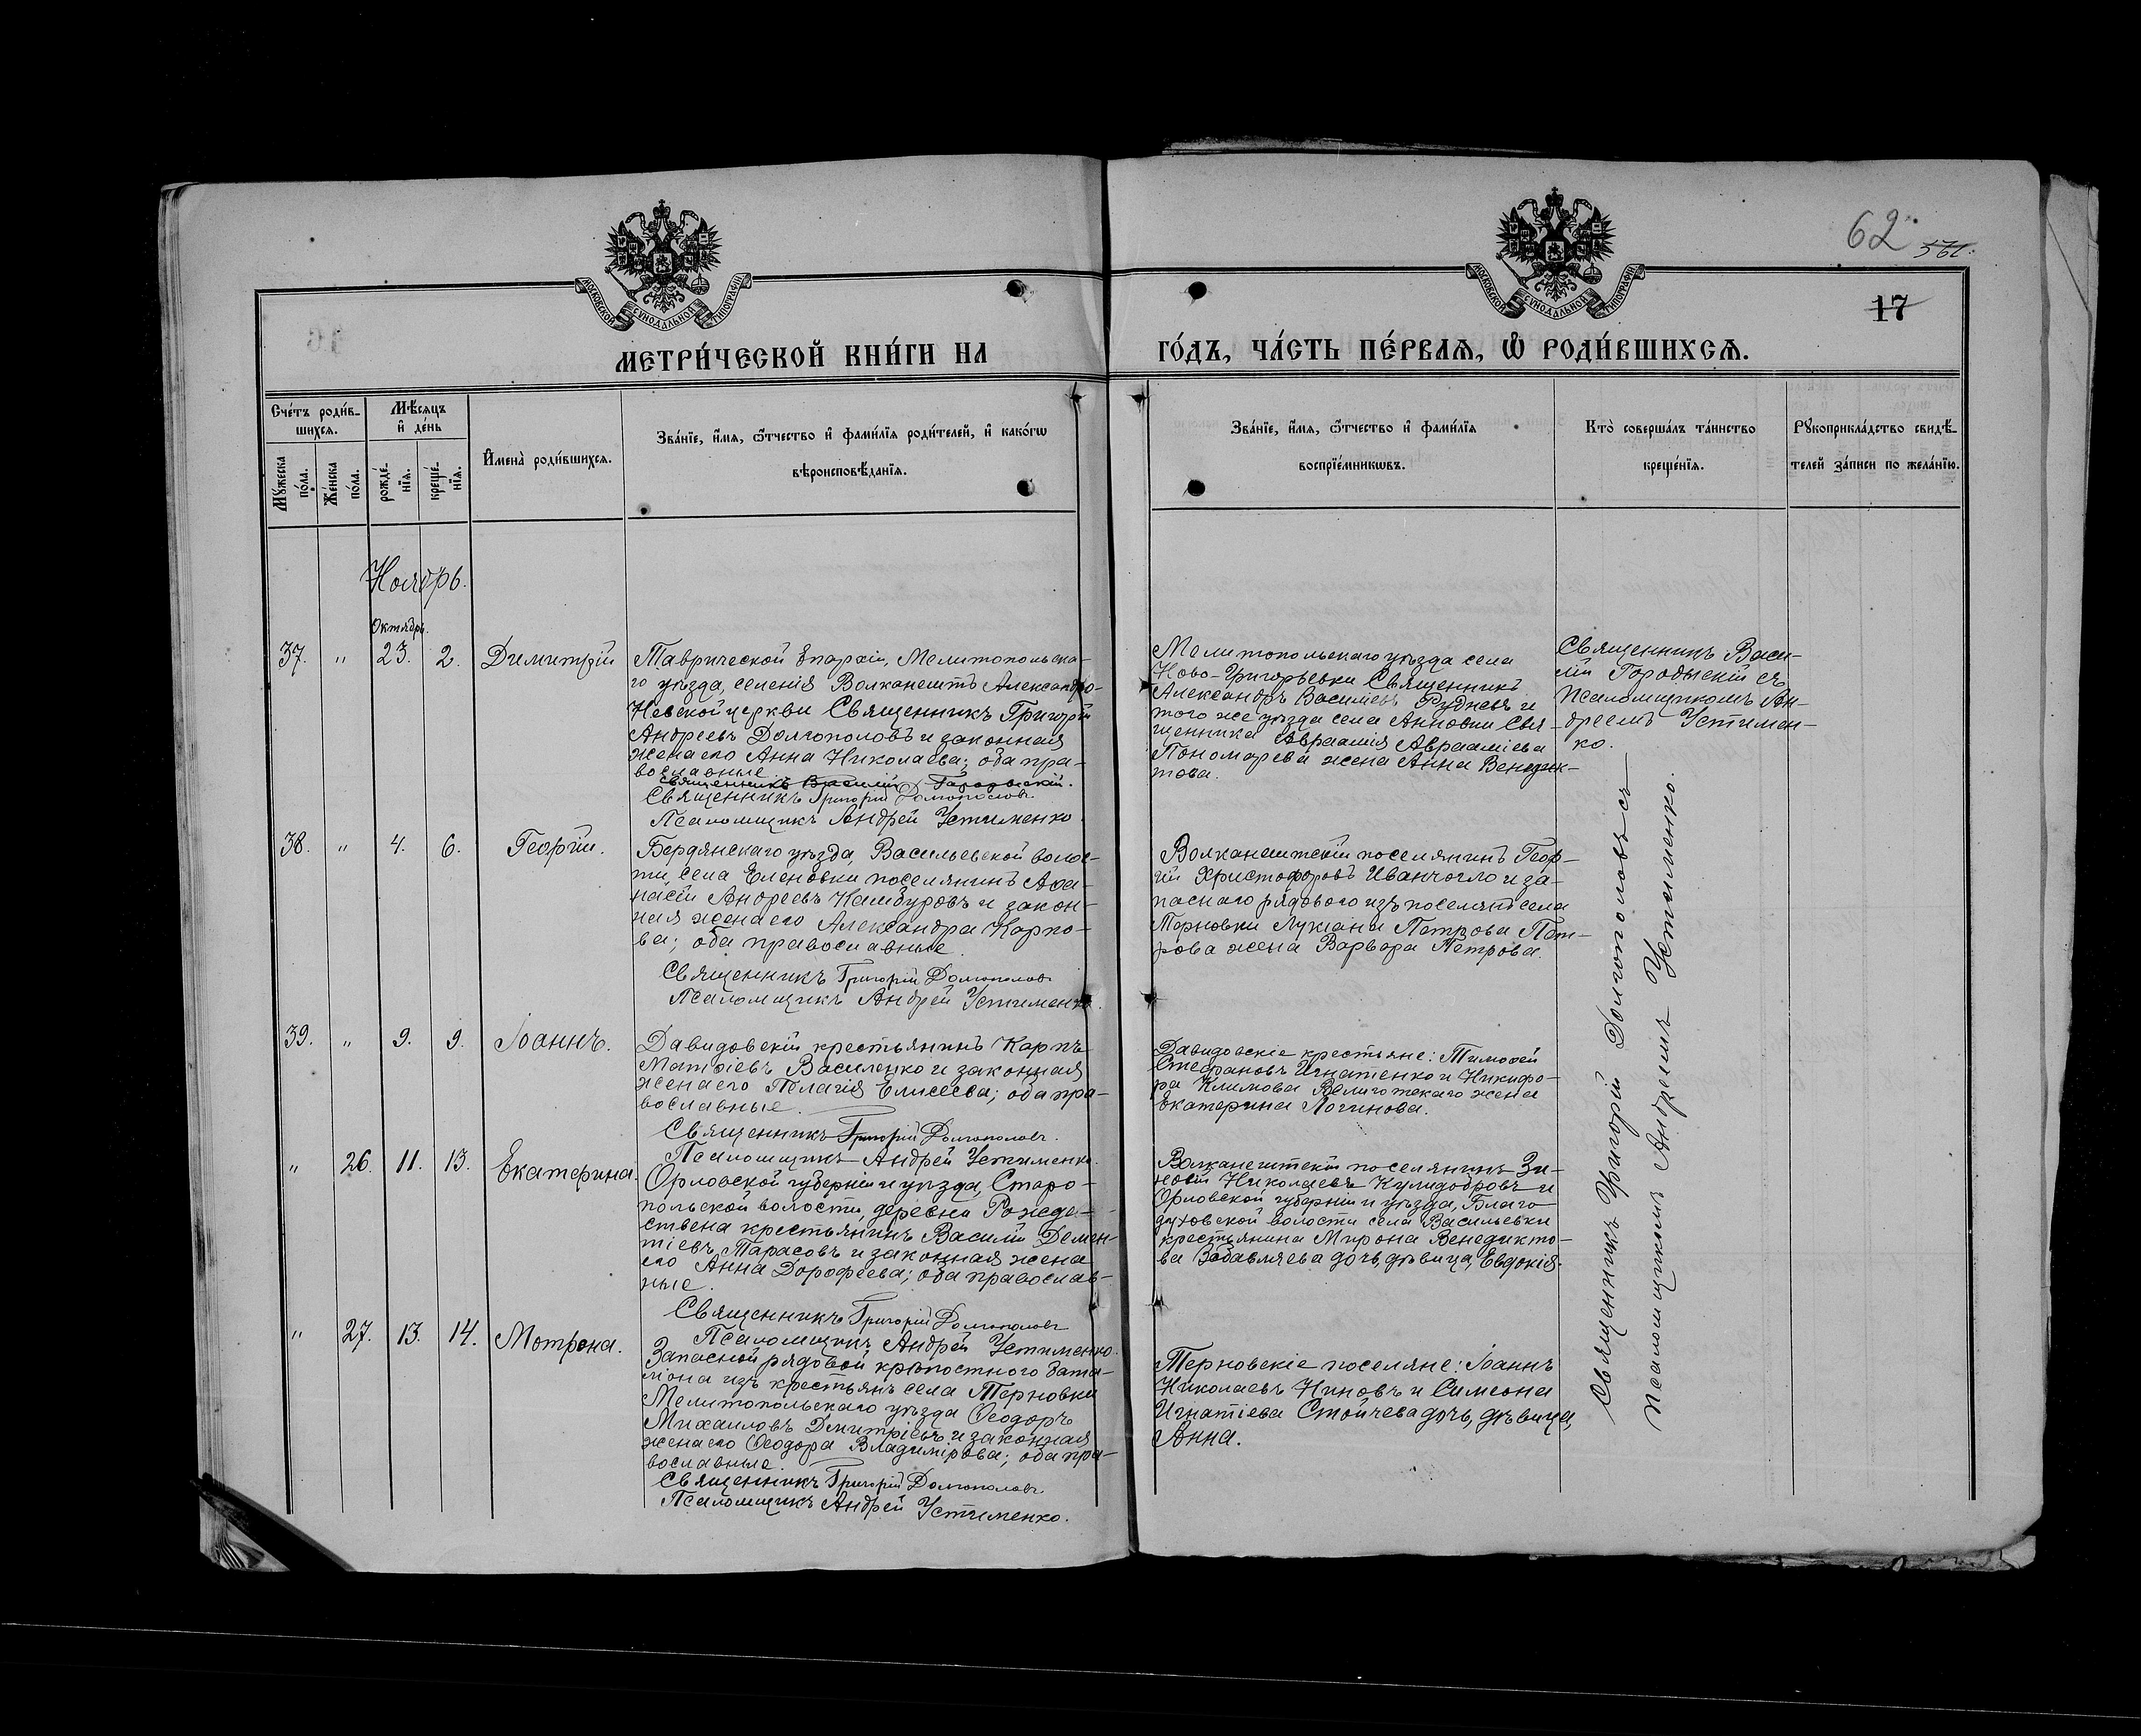 62
561.
17
МОСКОВСКОЙ СѴНОДАЛЬНОЙ ТИПОГРАФІИ
МОСКОВСКОЙ СѴНОДАЛЬНОЙ ТИПОГРАФІИ
МЕТРИ́ЧЕСКОЙ КНИ́ГИ НА
ГО́ДЪ, ЧА́СТЬ ПЕ́РВАѦ, Ѡ҆ РОДИ́ВШИХСѦ.
Сче́тъ роди́в-
шихсѧ.
Мѣ́сѧцъ
и҆ де́нь
Мꙋжеска по́ла.
Же́нска по́ла.
рожде́-
нїѧ.
креще́-
нїѧ.
И҆мена̀ роди́вшихсѧ.
Зва́нїе, и҆́мѧ, ѻ҆́тчество и҆ фами́лїѧ роди́телей, и҆ како́гѡ
вѣроисповѣ́данїѧ.
Зва́нїе, и҆́мѧ, ѻ҆́тчество и҆ фами́лїѧ
воспрїе́мникѡвъ.
Кто̀ соверша́лъ та́инство
креще́нїѧ.
Рꙋкоприкла́дство свидѣ́-
телей за́писи по жела́нїю.
Ноябрь.
Октябрь.
37. " 23. 2. Димитрій
Таврической Епархіи, Мелитопольска-
го уѣзда, селенія Волканештъ Александро-
Невской церкви Священникъ Григорій
Андреевъ Долгополовъ и законная
жена его Анна Николаева; оба пра-
вославные
Священникъ Василій Городыскій.
Священникъ Григорій Долгополовъ
Псаломщикъ Андрей Устименко
Мелитопольскаго уѣзда села
Ново-Григорьевки Священникъ
Александръ Василіевъ Рудневъ и
того же уѣзда села Анновки Свя-
щенника Авраамія Авраамiева
Пономарева жена Анна Венедик-
това.
Священникъ Васи-
лій Городыскій съ
псаломщикомъ Ан-
дреемъ Устимен-
ко.
38. " 4. 6. Георгій.
Бердянскаго уѣзда, Васильевской волос-
ти, села Еленовки поселянинъ Аѳа-
насій Андреевъ Камбуровъ и закон-
ная жена его Александра Карпо-
ва; оба православные.
Священникъ Григорій Долгополовъ
Псаломщикъ Андрей Устименко.
Волканештскій поселянинъ Геор-
гій Христофоровъ Иванчогло и за-
паснаго рядового изъ поселянъ села
Терновки Лукіана Петрова Пет-
рова жена Варвара Петрова.
39. " 9. 9. Іоаннъ.
Давидовскій крестьянинъ Карпъ
Матѳіевъ Василенко и законная
жена его Пелагія Елисеева; оба пра-
вославные.
Священникъ Григорій Долгополовъ.
Псаломщикъ Андрей Устименко.
Давидовскіе крестьяне: Тимоѳей
Стефановъ Игнатенко и Никифо-
ра Климова Велиготскаго жена
Екатерина Логинова.
" 26. 11. 13. Екатерина.
Орловской губерніи и уѣзда, Старо-
польской волости, деревни Рожде-
ствена крестьянинъ Василій Демен-
тіевъ Тарасовъ и законная жена
его Анна Дорофеева; оба православ-
ные.
Священникъ Григорій Долгополовъ
Псаломщикъ Андрей Устименко.
Волканештскій поселянинъ Зи-
новій Николаевъ Кулидобровъ и
Орловской губерніи и уѣзда, Благо-
духовской волости села Васильевки
крестьянина Мирона Венедикто-
ва Забавляева дочь, дѣвица, Евдокія.
" 27. 13. 14. Мотрона.
Запасной рядовой крѣпостного бата-
ліона изъ крестьянъ села Терновки
Мелитопольскаго уѣзда Ѳеодоръ
Михаиловъ Дмитріевъ и законная
жена его Ѳеодора Владимірова; оба пра-
вославные.
Священникъ Григорій Долгополовъ
Псаломщикъ Андрей Устименко.
Терновскіе поселяне: Іоаннъ
Николаевъ Ниновъ и Симеона
Игнатіева Стойчева дочь, дѣвица,
Анна.
Священникъ Григорій Долгополовъ съ
псаломщикомъ Андреемъ Устименко.